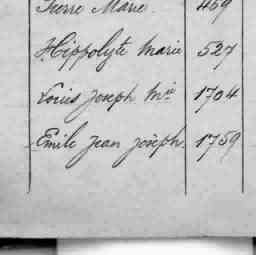 Pierre Marie. 469
Hippolyte Marie 527
Louis Joseph Mie 1704
Emile Jean Joseph. 1759